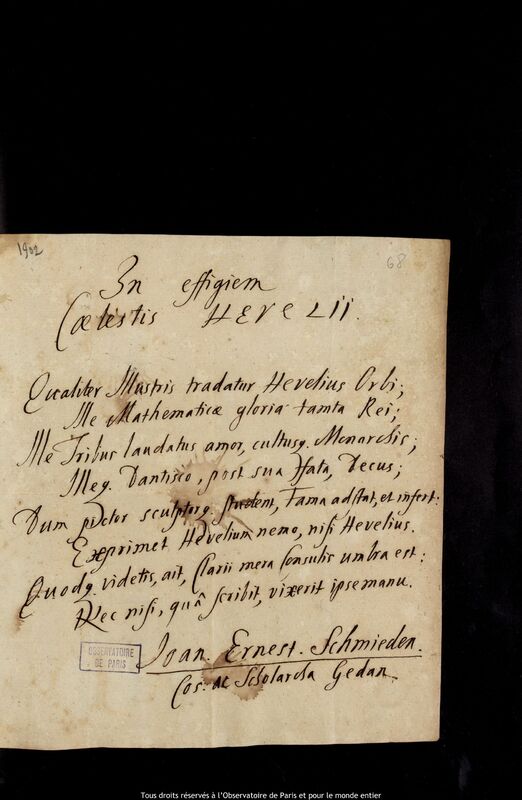 1902
68
In effigiem
Cœlestis HEVELII.
Qualiter Illustris tradatur Hevelius Orbi;
Ille Mathematicæ gloria tanta Rei;
Ille Tribus laudatus amor, cultusq. Monarchis;
Illeq. Dantisco, post sua Fata, Decus;
Dum pictor sculptorq. student, Fama adstat, et infert:
Exprimet Hevelium nemo, nisi Hevelius.
Quodq. videtis, ait, Clarii mera Consulis umbra est:
Nec nisi, quâ scribit, vixerit ipse manu.
Joan. Ernest. Schmieden.
Cos: ac Scholarcha Gedan.
OBSERVATOIRE
DE PARIS
Tous droits réservés à l'Observatoire de Paris et pour le monde entier